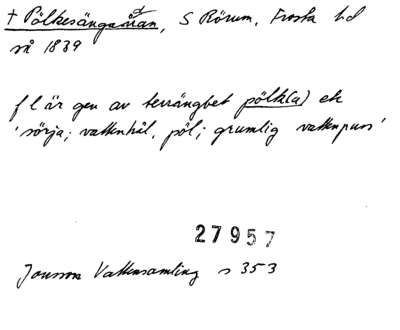 † Pölkesängaåran, S Rörum, Frosta hd
så 1839
f l är gen av terrängbet pölk(a) etc
'sörja; vattenhål, pöl; grumlig vattenpuss'
27957
Jonsson Vattensamling s 353